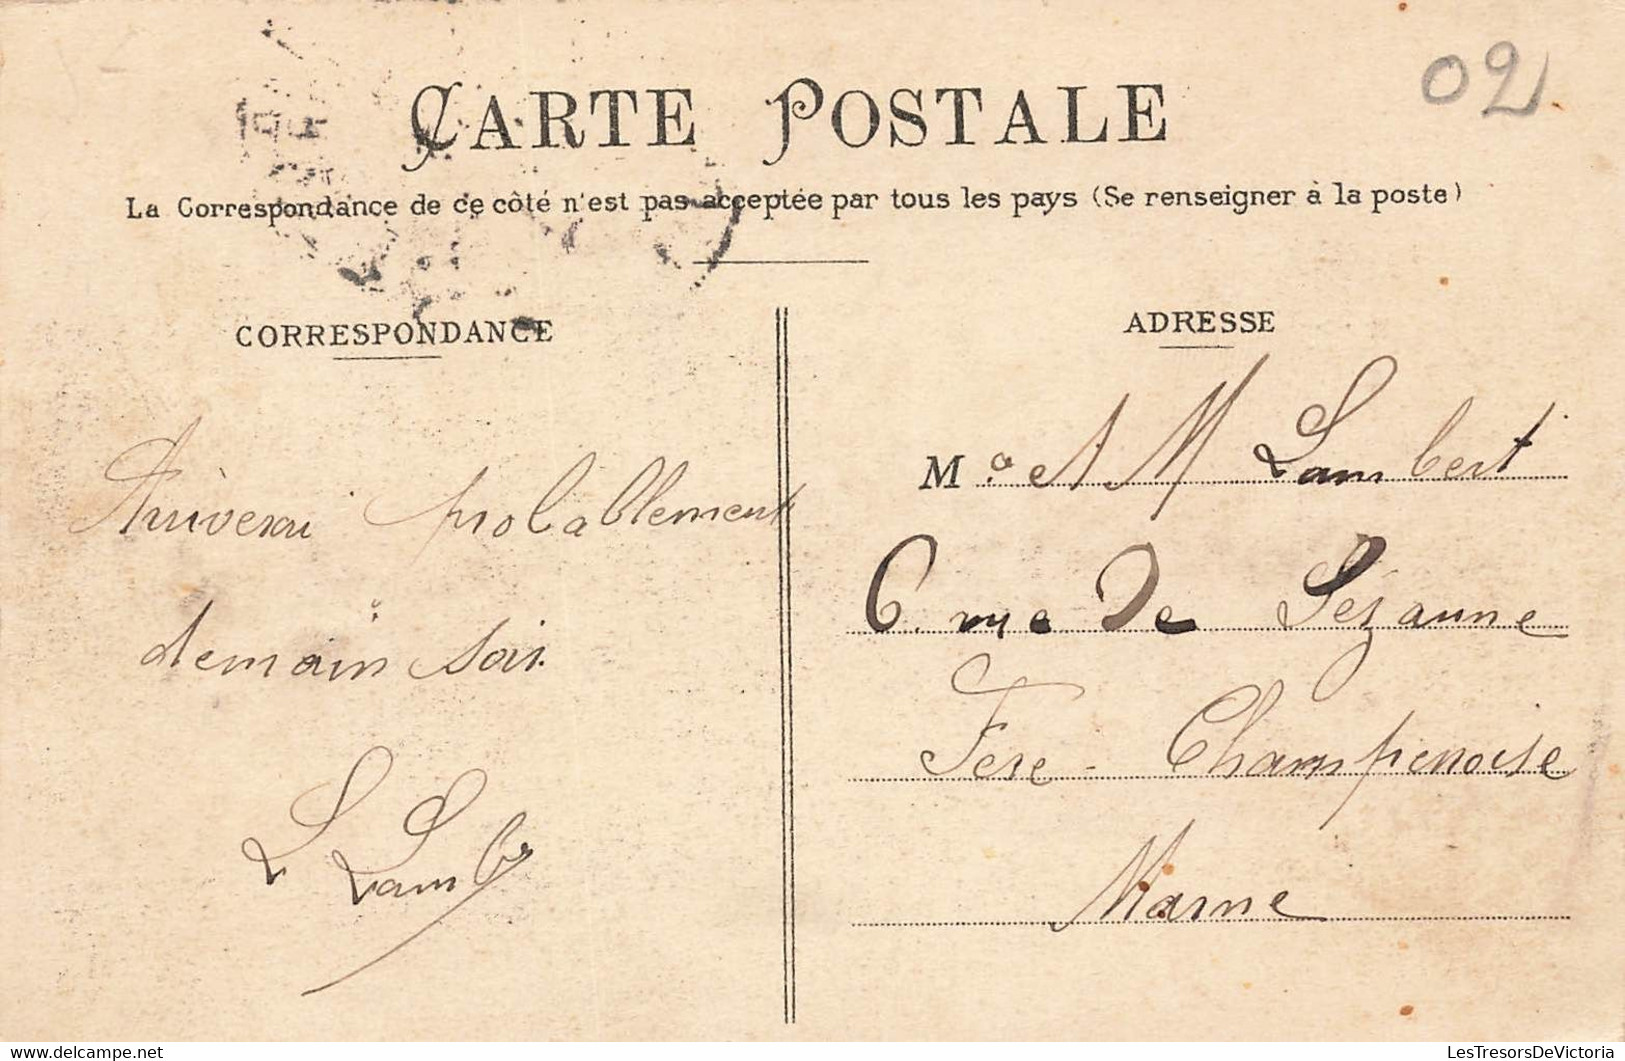 02
CARTE POSTALE
La Correspondance de ce côté n'est pas acceptée par tous les pays (Se renseigner à la poste)
CORRESPONDANCE
Arriverai probablement
demain soir
L Lamb
ADRESSE
M. et M Lambert
6. rue De Sézanne
Fere - Champenoise
Marne
delcampe.net
LesTresorsDeVictoria